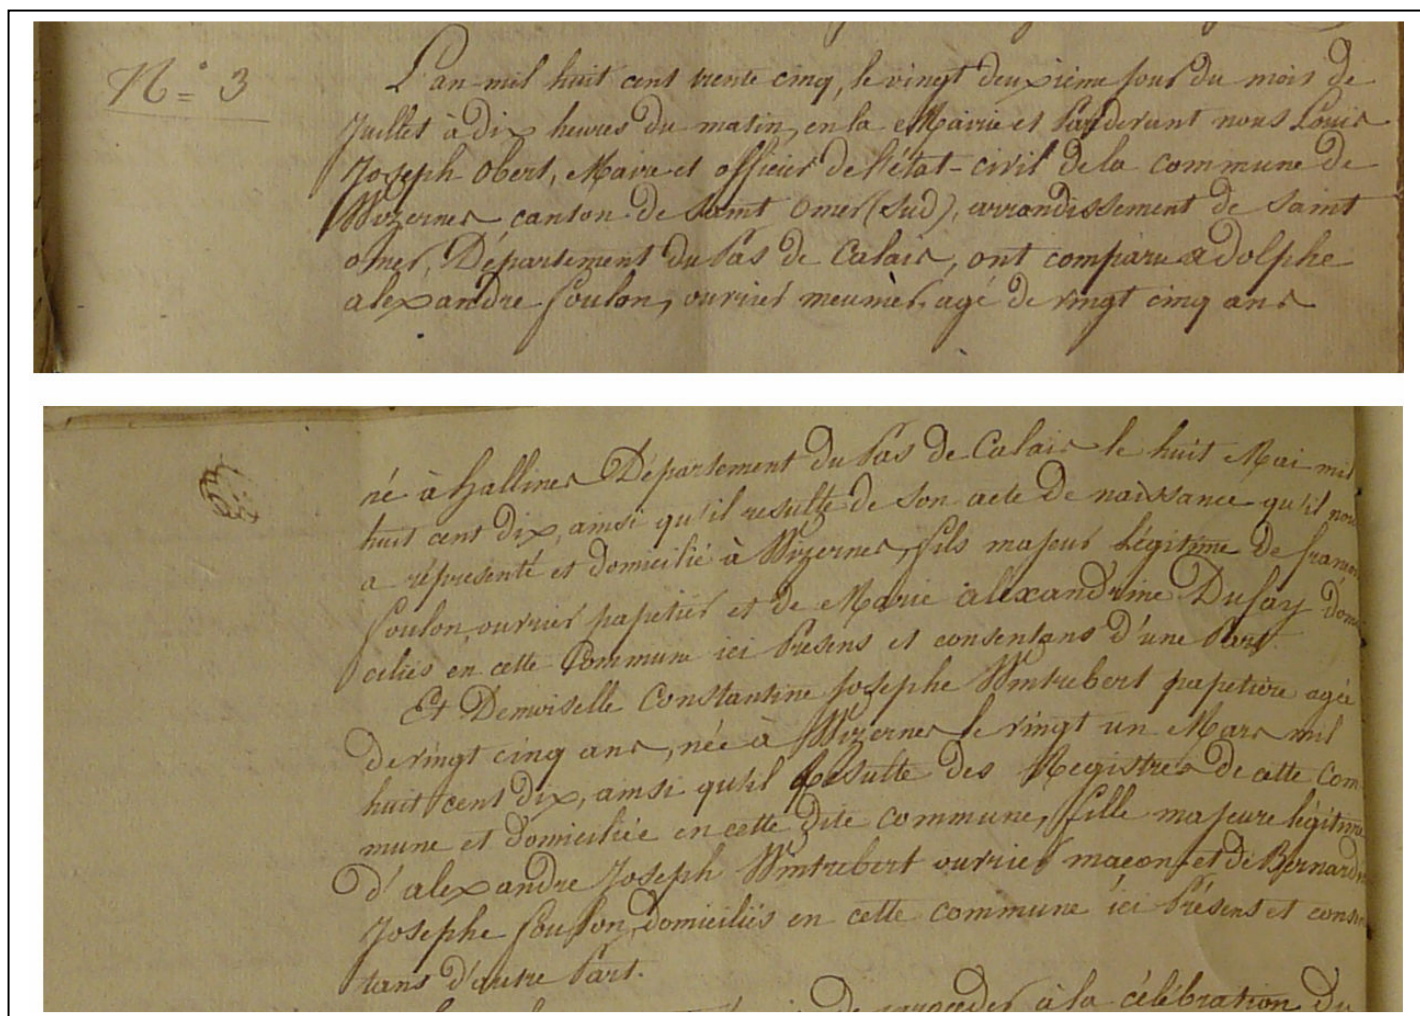 N° 3
L'an mil huit cent trente cinq, le vingt deuxième jour du mois de
Juillet à dix heures du matin, en la Mairie et Pardevant nous Louis
Joseph Obert, Maire et officier de l'état-civil de la commune de
Wizernes canton de Saint Omer (sud), arrondissement de Saint
omer, Département du Pas de Calais, ont comparu adolphe
alexandre foulon, ouvrier meunier, agé de vingt cinq ans
né à hallines Département du Pas de Calais le huit Mai mil
huit cent dix, ainsi qu'il resulte de son acte de naissance qu'il nous
a réprésenté et domicilié à Wizernes, fils majeur légitime de
foulon, ouvrier papetier et de Marie aléxandrine Dufay domi
ciliés en cette Commune ici Présens et consentans d'une Part.
Et Demoiselle Constantine Josephe Wintrebert papetière agée
de vingt cinq ans, née à Wizernes le vingt un Mars mil
huit cent dix, ainsi qu'il Résulte des Registres de cette Com
mune et domiciliée en cette dite commune, fille majeure légitime
d'alexandre Joseph Wintrebert ouvrier maçon et de Bernardine
Josephe foulon, domiciliés en cette commune ici Présens et consen
tans d'autre Part.
de proceder à la célébration du